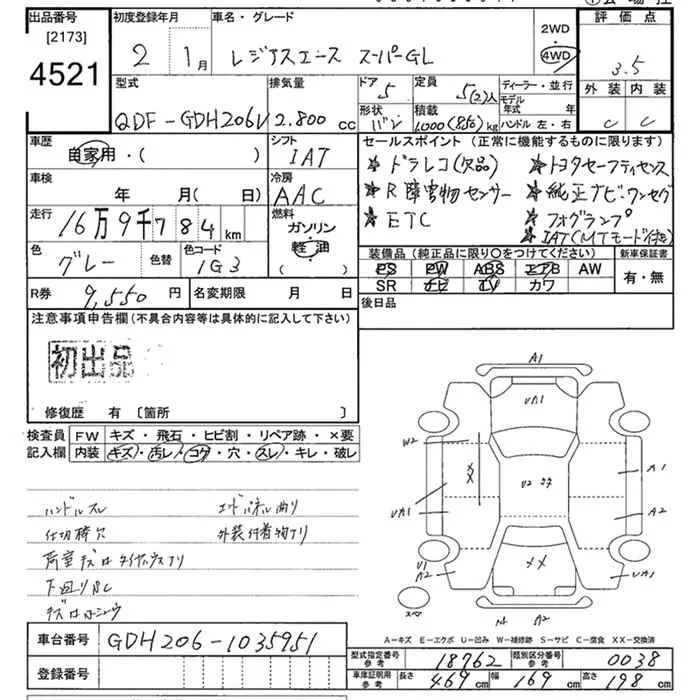 出品番号
[2173]
4521
初度登録年月
2 1月
車名・グレード
レジアスエース スーパーGL
2WD
4WD
評価点
3.5
外装 内装
C C
型式
QDF-GDH206V
排気量
2.800 cc
ドア
5
定員
5(2)人
形状
バン
積載
1000(850)kg
ディーラー・並行
モデル年式 年
ハンドル 左・右
車歴
自家用・( )
シフト
IAT
車検
年 月(日)
冷房
AAC
走行
16万9千784km
燃料
ガソリン
軽油
( )
色
グレー
色替
色コード
1G3
R券
9,550円
名変期限 月 日
セールスポイント (正常に機能するものに限ります)
★ドラレコ(欠品) ★トヨタセーフティセンス
★R障害物センサー ★純正ナビ・ワンセグ
★ETC ★フォグランプ
★IAT(MTモード付き)
装備品(純正品に限り〇をつけてください)
PS PW ABS エアB AW
SR ナビ TV カワ
新車保証書
有・無
後日品
注意事項申告欄(不具合内容等は具体的に記入して下さい)
初出品
修復歴 有 〔箇所 〕
検査員記入欄
FW キズ・飛石・ヒビ割・リペア跡・×要
内装 キズ・汚レ・コゲ・穴・スレ・キレ・破レ
ハンドルスレ
仕切棒穴
外装付着物アリ
下回り
A1
UA1
W2
XX
U2
A1
UA1
A2
U1
A2
XX
UA1
スペア
A2
A-キズ E-エクボ U-凹み W-補修跡 S-サビ C-腐食 XX-交換済
車台番号
GDH206-1035951
登録番号
型式指定番号 参考
18762
類別区分番号 参考
0038
車庫証明用 参考
長さ 469cm 幅 169cm 高さ 198cm